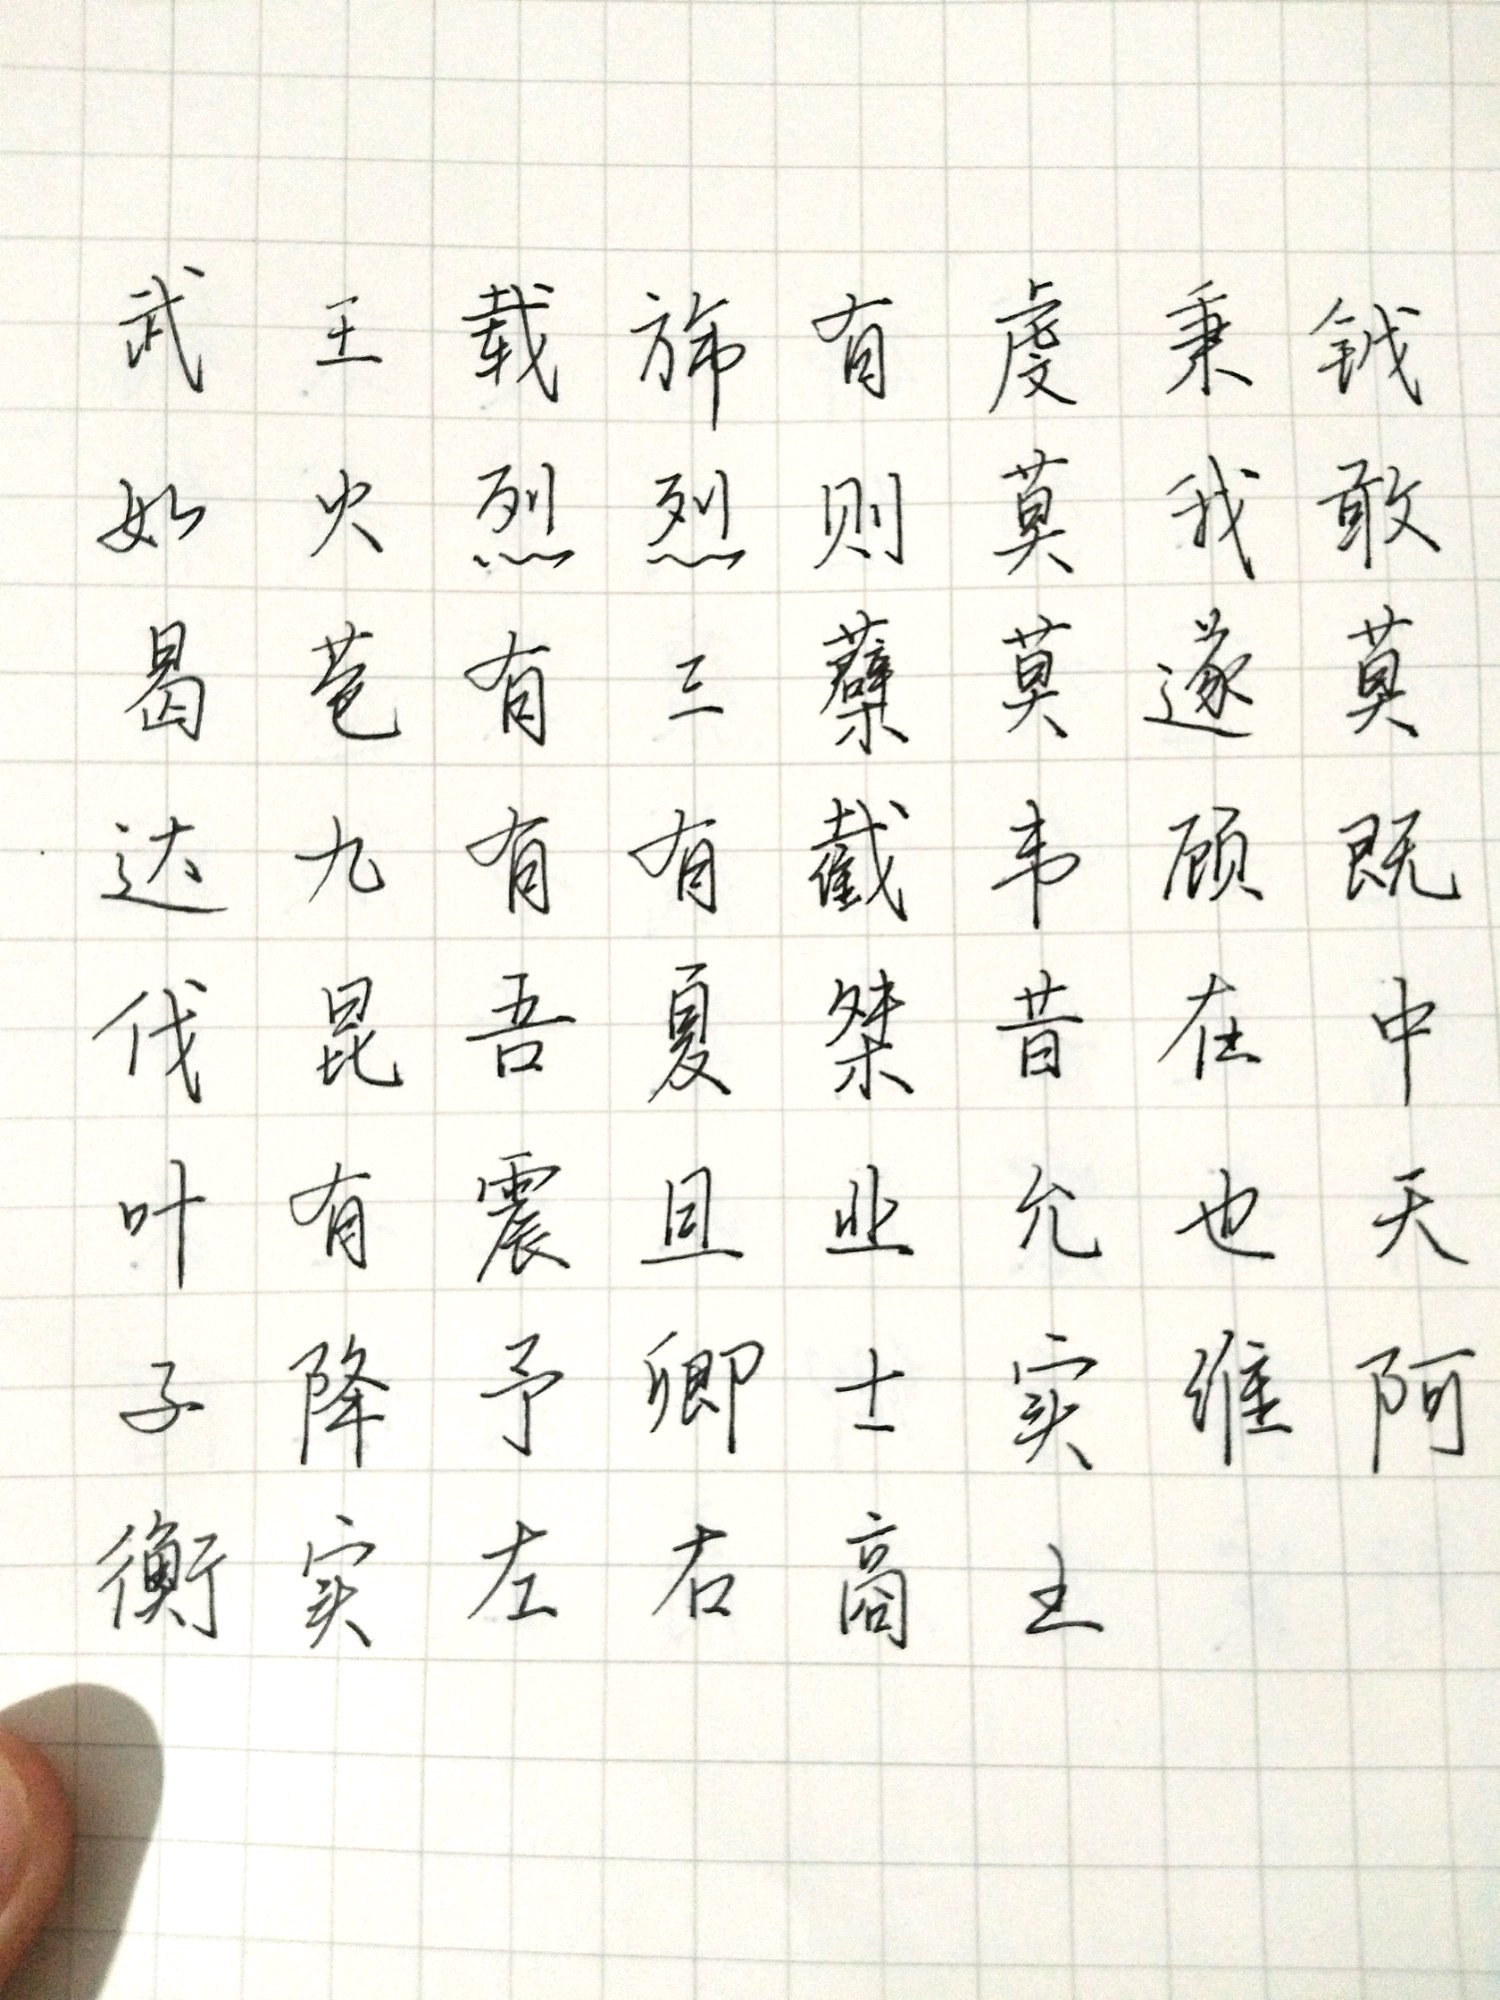 武王载旆有虔秉钺
如火烈烈则莫我敢
曷苞有三蘖莫遂莫
达九有有截韦顾既
伐昆吾夏桀昔在中
叶有震且业允也天
子降予卿士实维阿
衡实左右商王